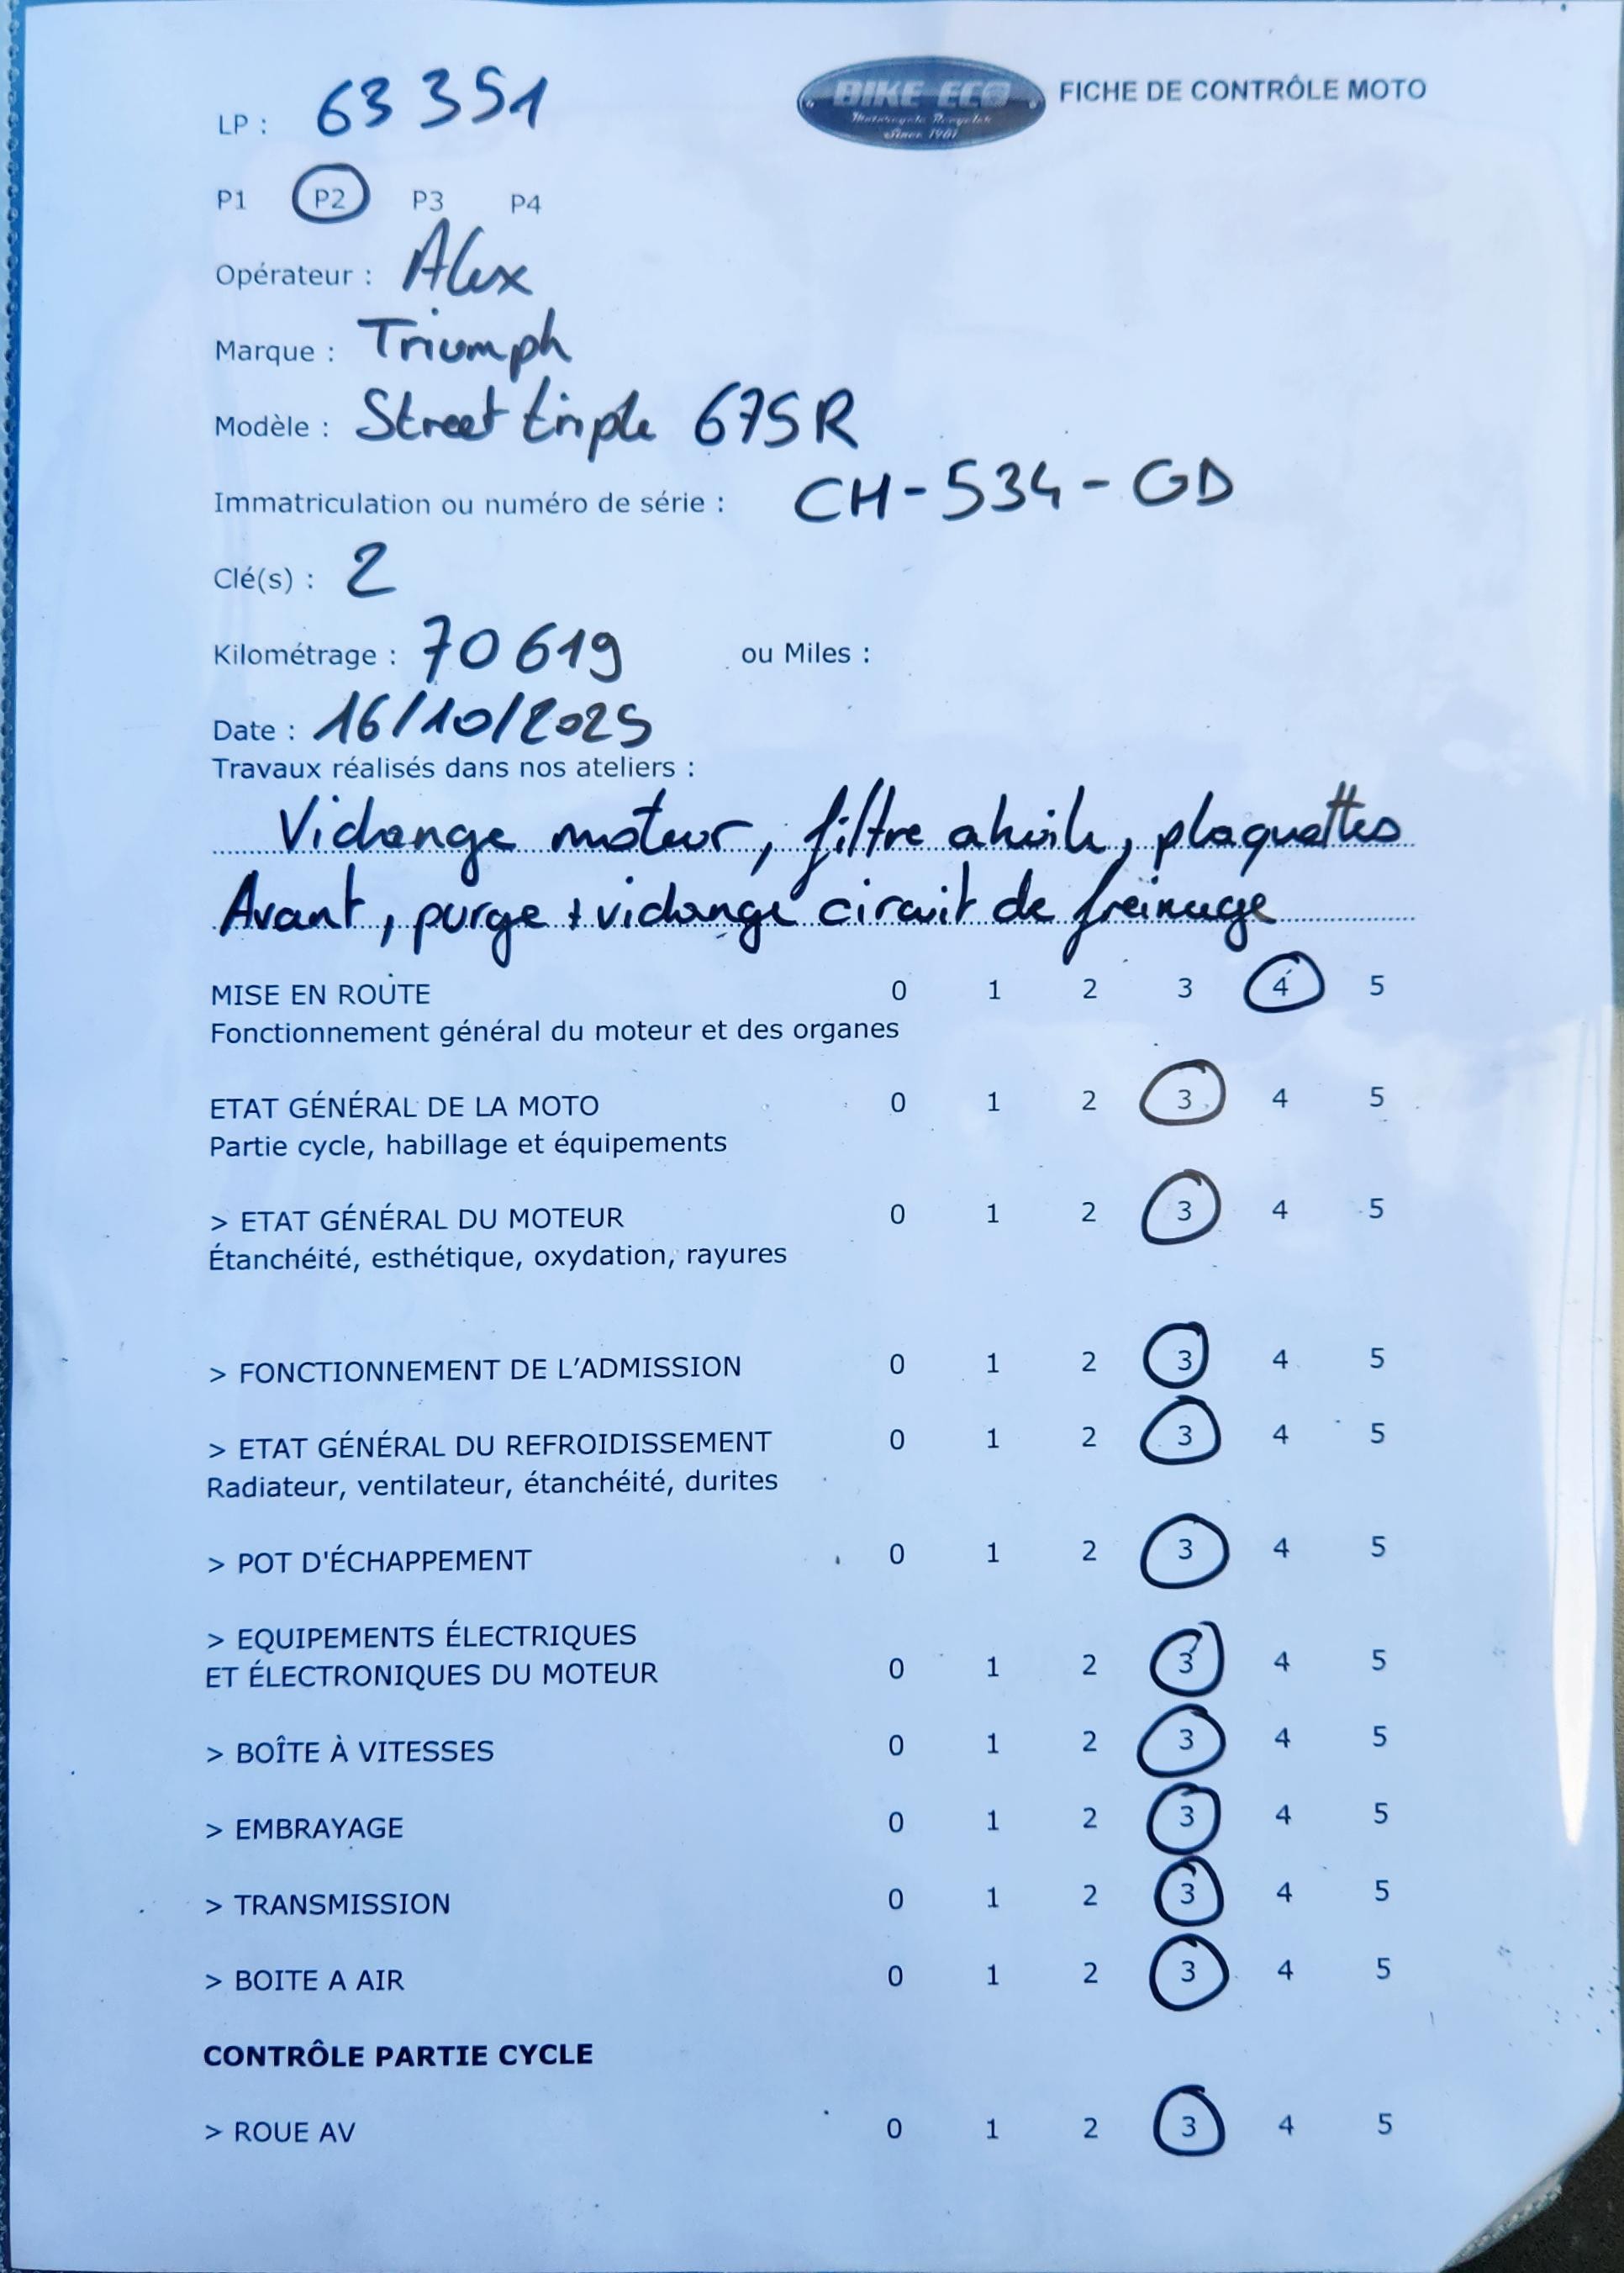 LP : 63 351
BIKE ECO
Motorcycle Recycler
Since 1981
FICHE DE CONTRÔLE MOTO
P1 P2 P3 P4
Opérateur : Alex
Marque : Triumph
Modèle : Street triple 675R
Immatriculation ou numéro de série : CH-534-GD
Clé(s) : 2
Kilométrage : 70 619 ou Miles :
Date : 16/10/2025
Travaux réalisés dans nos ateliers :
Vidange moteur, filtre a huile, plaquettes
Avant, purge + vidange circuit de freinage
MISE EN ROUTE 0 1 2 3 4 5
Fonctionnement général du moteur et des organes
ETAT GÉNÉRAL DE LA MOTO 0 1 2 3 4 5
Partie cycle, habillage et équipements
> ETAT GÉNÉRAL DU MOTEUR 0 1 2 3 4 5
Étanchéité, esthétique, oxydation, rayures
> FONCTIONNEMENT DE L'ADMISSION 0 1 2 3 4 5
> ETAT GÉNÉRAL DU REFROIDISSEMENT 0 1 2 3 4 5
Radiateur, ventilateur, étanchéité, durites
> POT D'ÉCHAPPEMENT 0 1 2 3 4 5
> EQUIPEMENTS ÉLECTRIQUES
ET ÉLECTRONIQUES DU MOTEUR 0 1 2 3 4 5
> BOÎTE À VITESSES 0 1 2 3 4 5
> EMBRAYAGE 0 1 2 3 4 5
> TRANSMISSION 0 1 2 3 4 5
> BOITE A AIR 0 1 2 3 4 5
CONTRÔLE PARTIE CYCLE
> ROUE AV 0 1 2 3 4 5